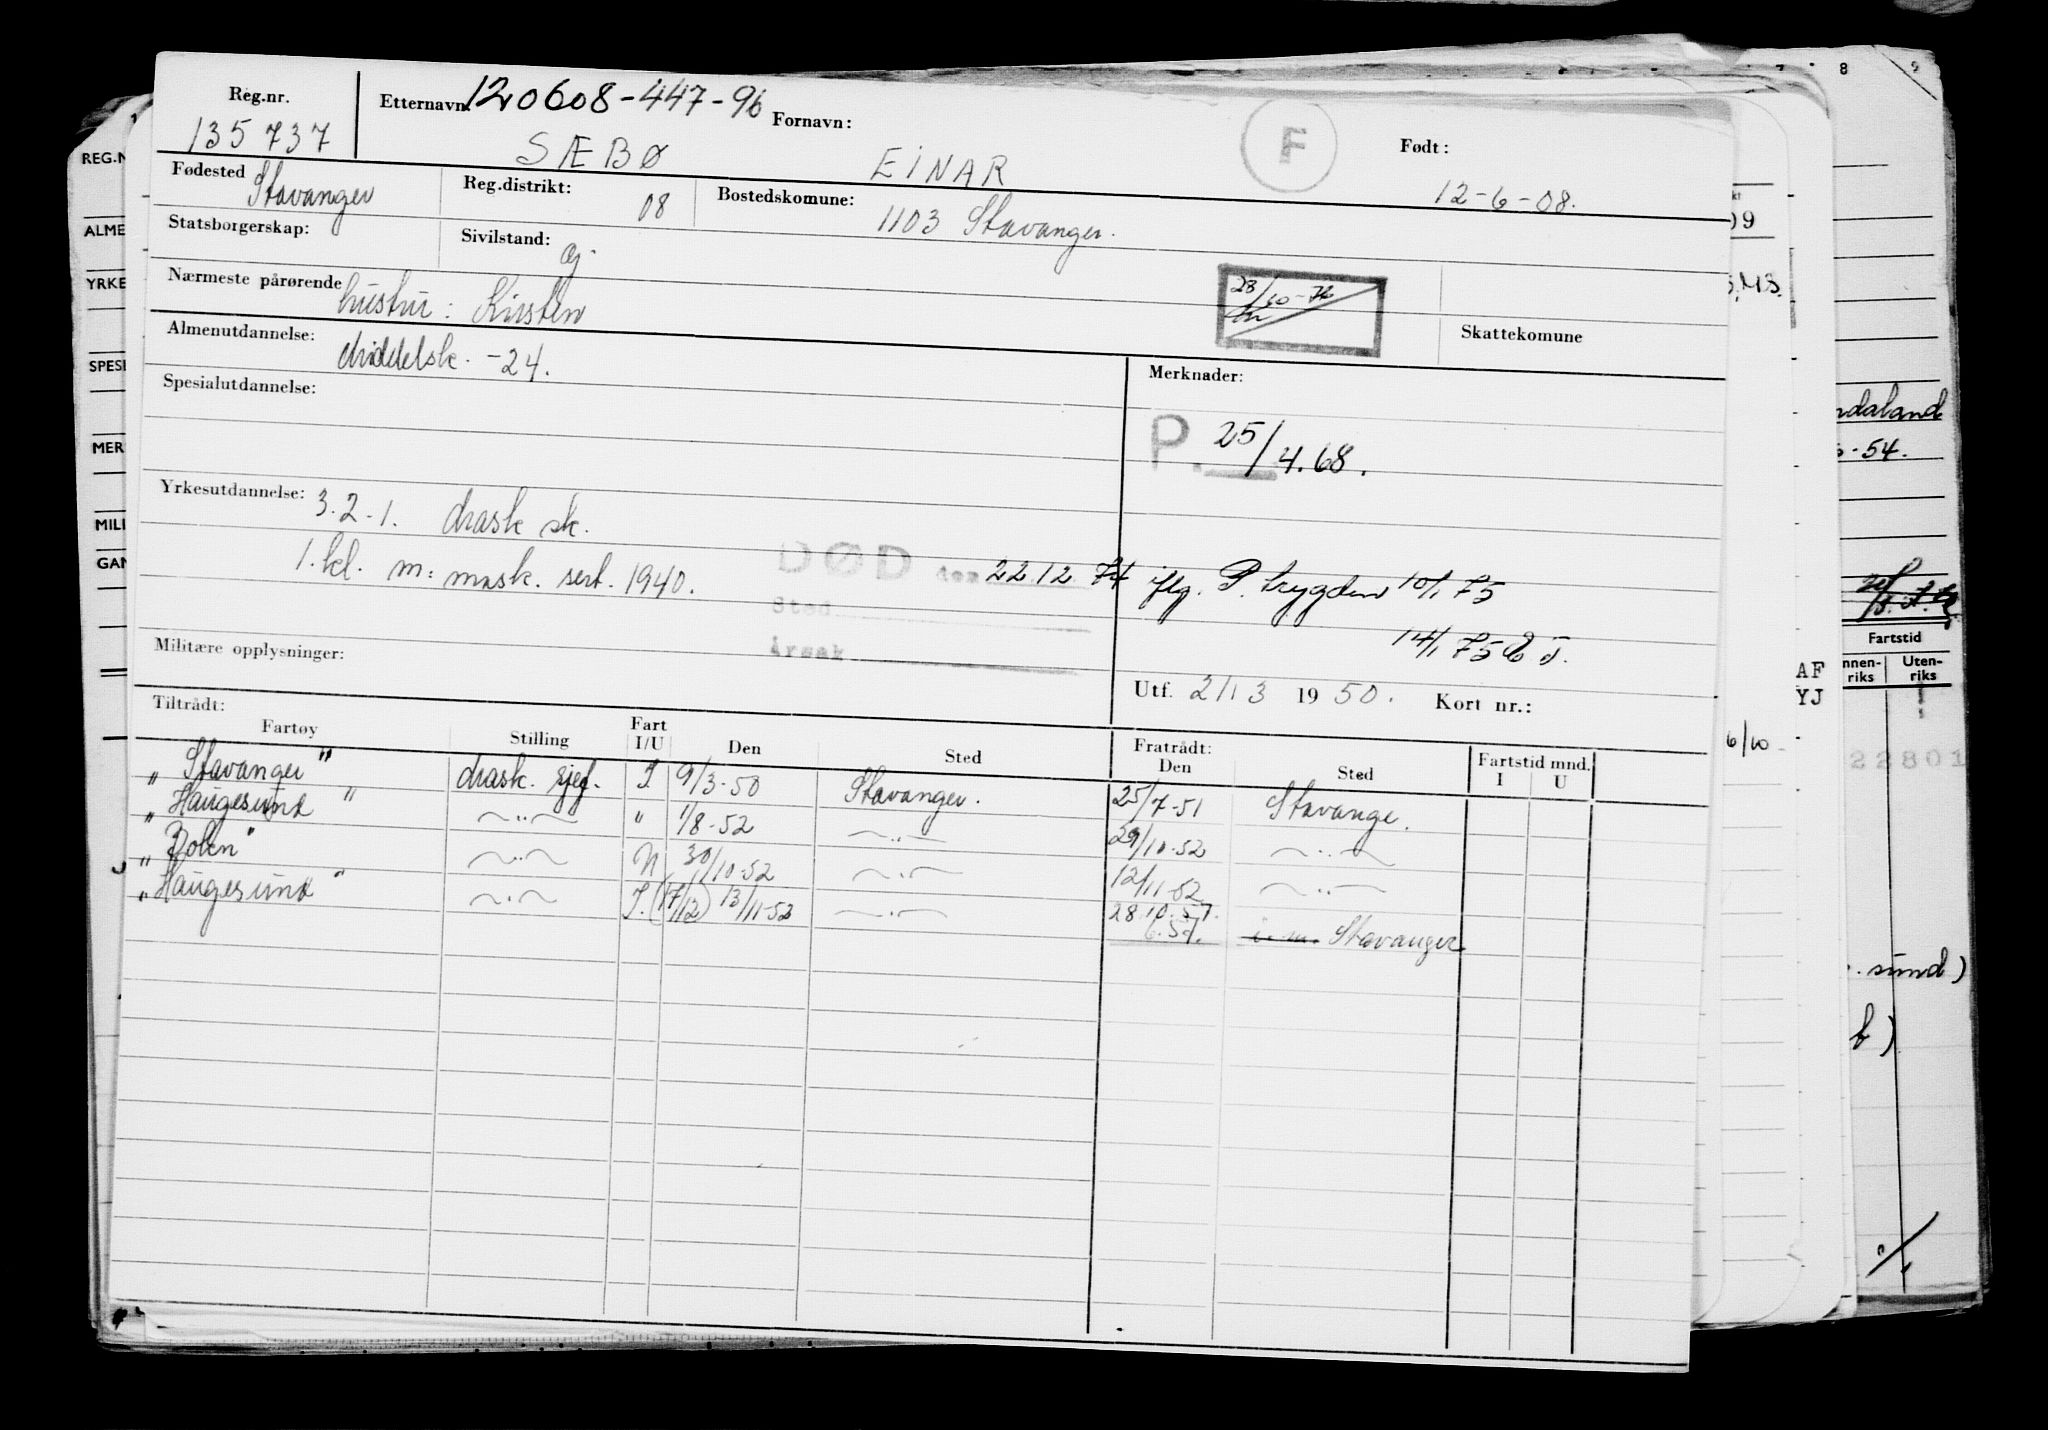 Reg.nr. 135737
Etternavn: 120608-447-96 Fornavn: F Født:
SÆBØ EINAR 12-6-08.
Fødested Stavanger Reg.distrikt: 08 Bostedskomune: 1103 Stavanger.
Statsborgerskap: Sivilstand: g.
Nærmeste pårørende hustru: Kirsten 28/10-76
Skattekomune
Almenutdannelse: Middelsk. -24.
Spesialutdannelse: Merknader:
P. 25/4.68.
Yrkesutdannelse: 3.2-1. mask sk.
1. kl. m: mask. sert. 1940.
DØD den 22.12.74 iflg. P. trygden 10/1 75
Sted
Årsak 14/1 75
Militære opplysninger:
Utf. 21/3 1950. Kort nr.:
Tiltrådt: Fratrådt: Fartstid mnd.
Fartøy Stilling Fart I/U Den Sted Den Sted I U
"Stavanger" mask. I 9/3-50 Stavanger. 25/7-51 Stavange.
"Haugesund" —"— " 1/8-52 —"— 29/10-52 —"—
—"— 30/10-52 —"— 12/11-52 —"—
"Haugesund" —"— I. (17/12) 13/11-52 —"— 28.10.57.
6.57. i. m. Stavanger
REG.N
ALME
YRKE
SPESE
MER
MILI
GAN
8 9
09
ndaland
-54.
Fartstid
nnen-riks Uten-riks
AF
YJ
6/10
22801
. sund)
b)